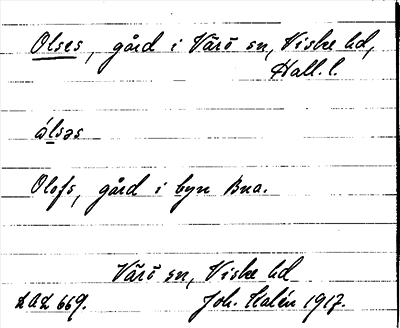 Olses, gård i Värö sn, Viske hd,
Hall. l.
ólsəs
Olofs, gård i byn Bua.
Värö sn, Viske hd
LAL 669. Joh. Kalén 1917.